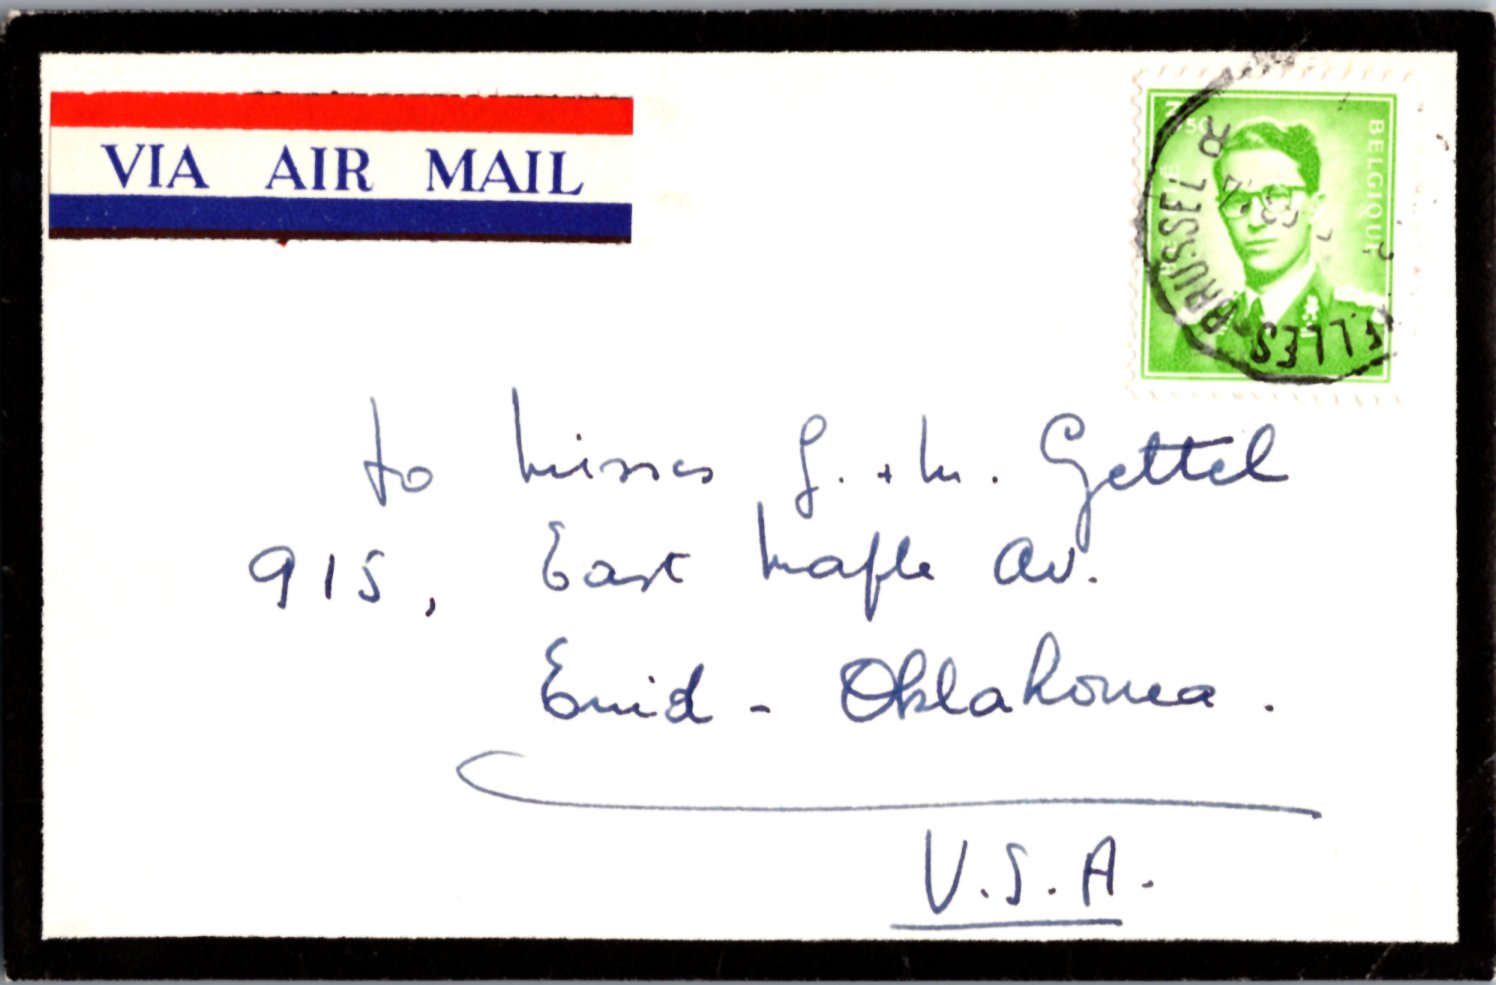 VIA AIR MAIL
BELGIQUE
BRUSSEL
to Misses G. + M. Gettel
915, East Maple Av.
Enid - Oklahoma.
U.S.A.